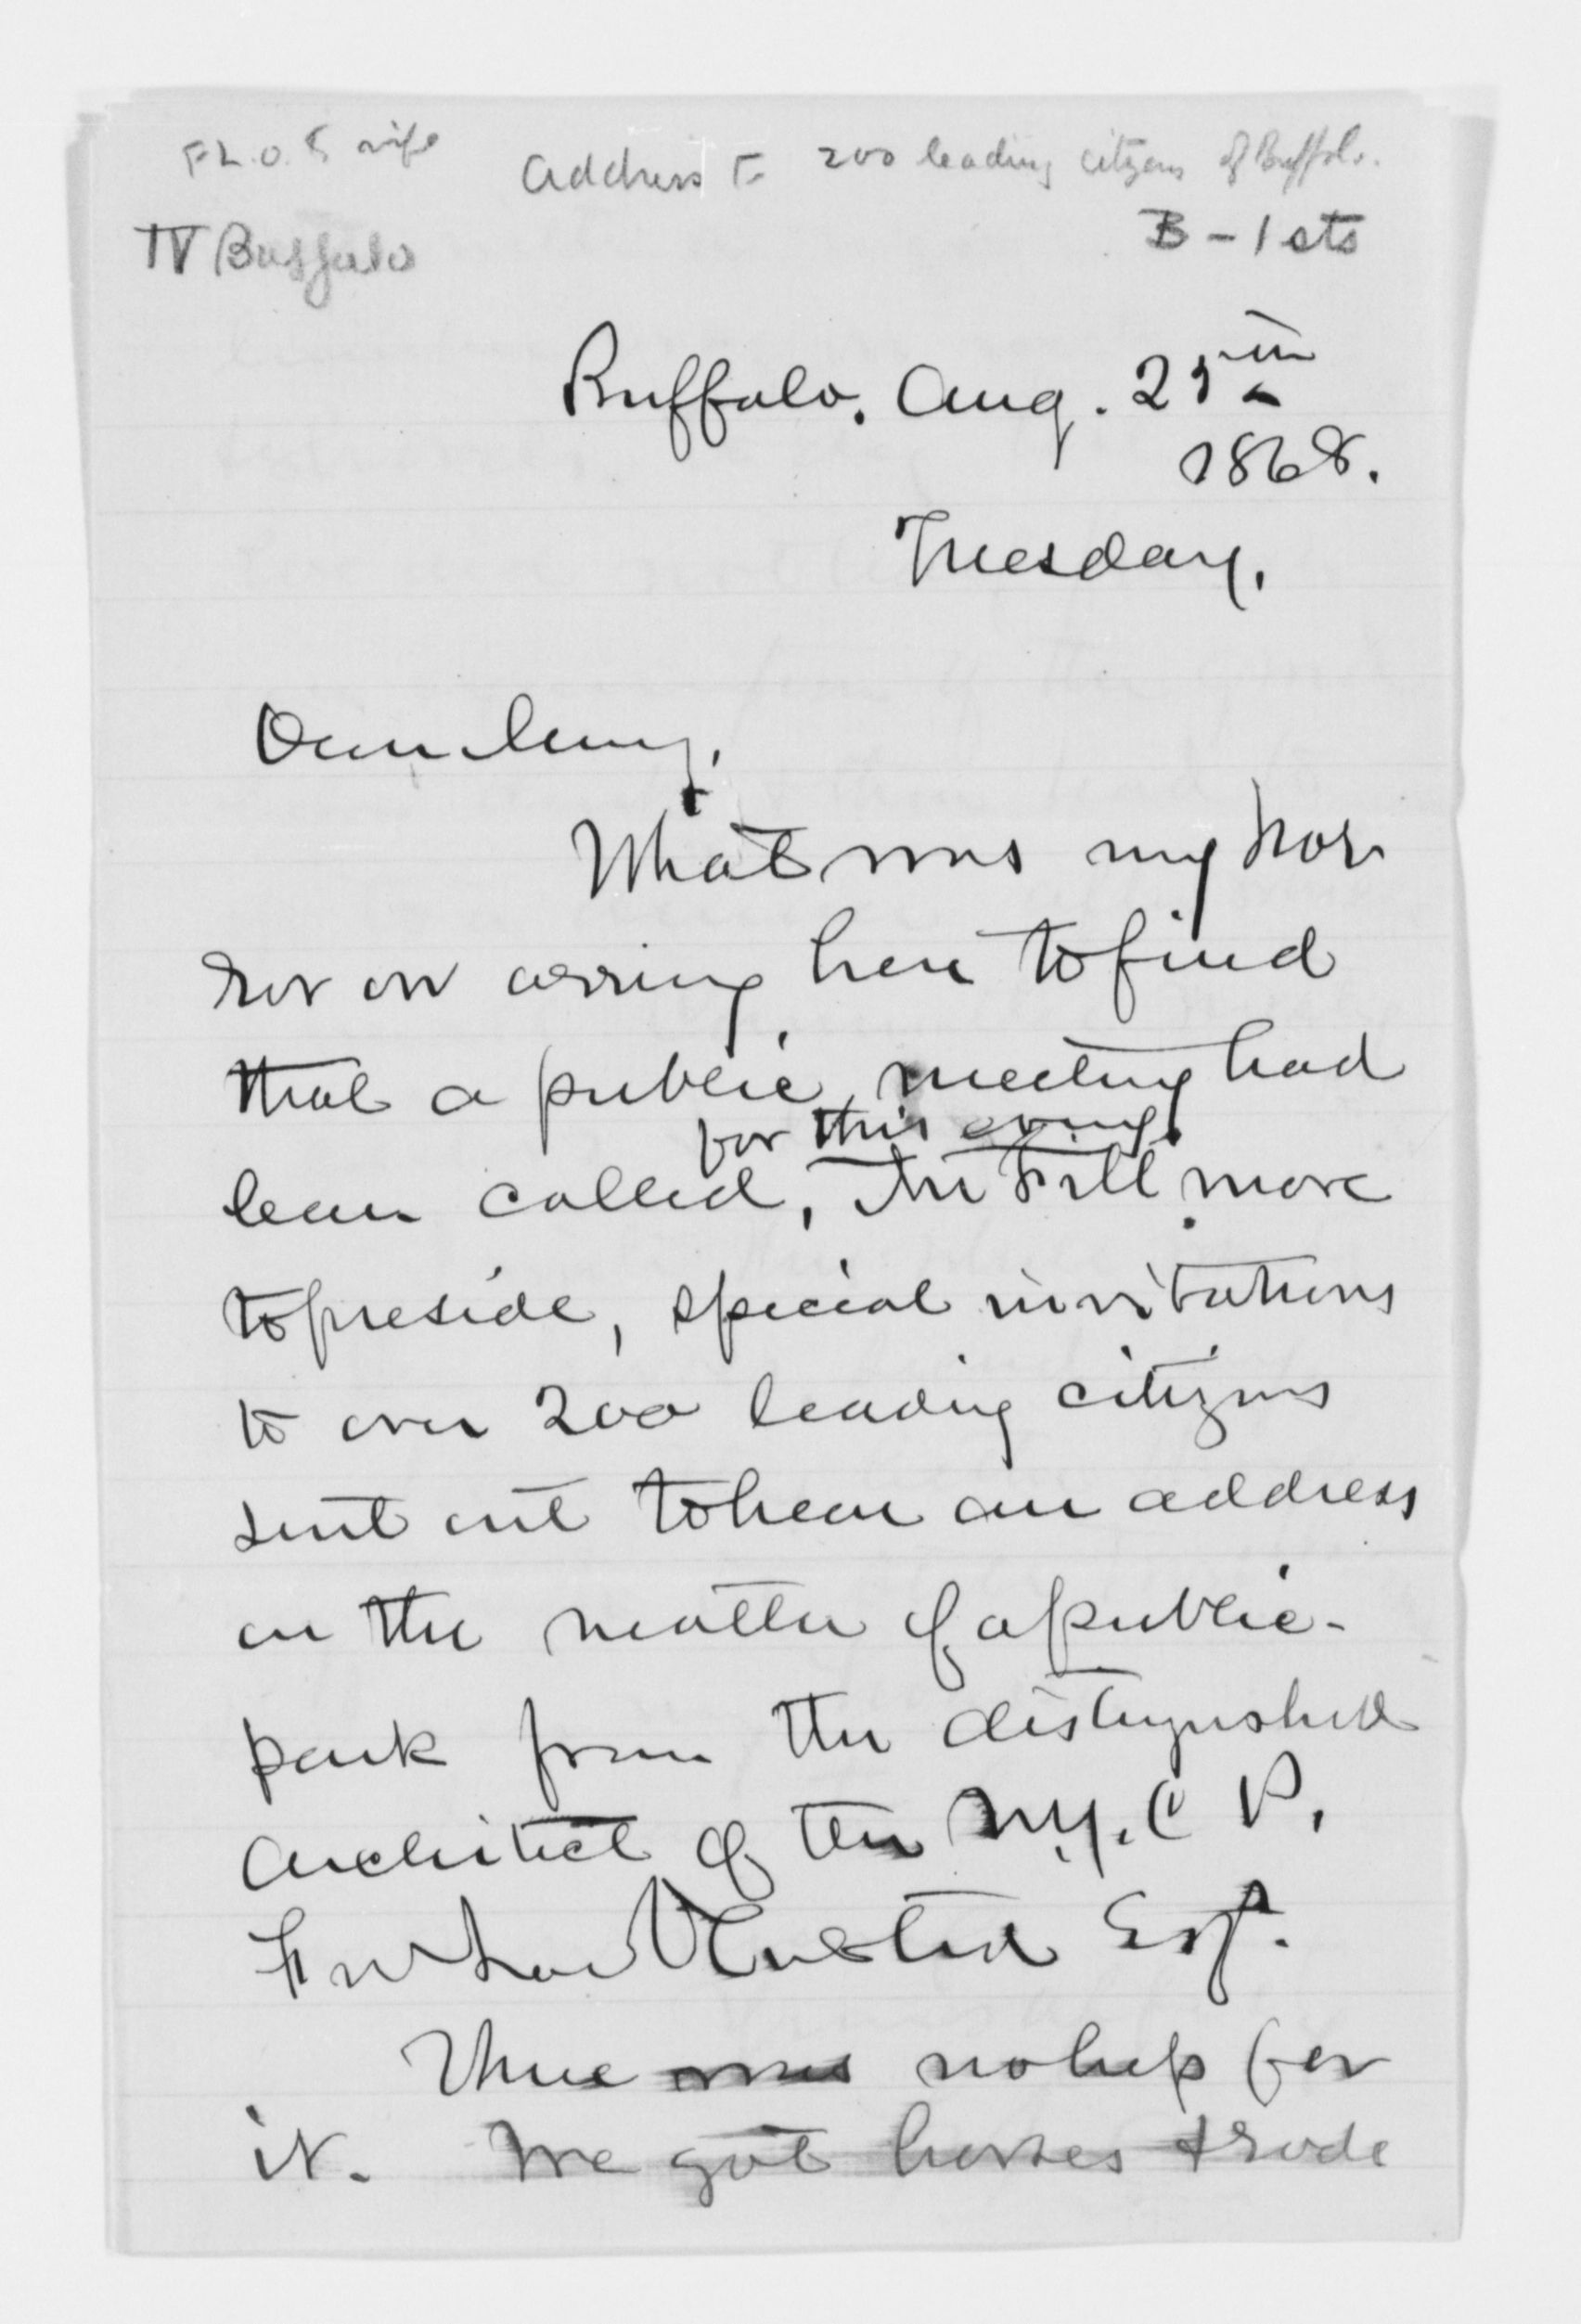 F.L.O. to wife
Address to 200 leading citizens of Buffalo.
B-1 cts
IV Buffalo
Buffalo. Aug. 25th
1868.
Tuesday.
Dear Mary,
What was my hor
ror on arring here to find
that a public meeting had
for this evng.
been called, Mr Fillmore
to preside, special invitations
to over 200 leading citizens
sent out to hear an address
on the matter of a public-
park from the distinguished
Architect of the N.Y. C P.
Fred Law Olmsted Esq.
There was no help for
it. We got horses & rode